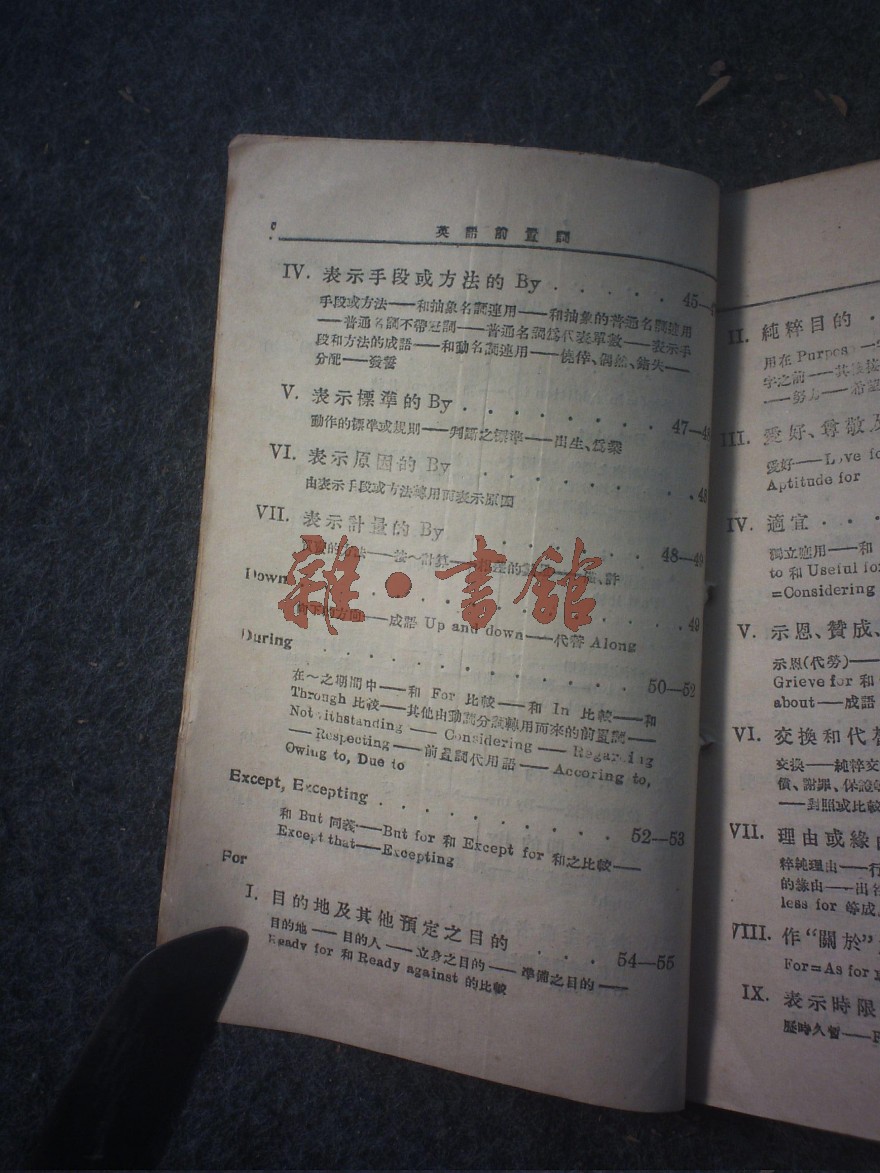 英語前置詞
IV. 表示手段或方法的 By . . . . . . 45—
手段或方法——和抽象名詞連用——和抽象的普通名詞連用
——普通名詞不帶冠詞——普通名詞爲代表單數——表示手
段和方法的成語——和動名詞連用——僥倖、偶然、錯失——
分配——發誓
V. 表示標準的 By . . . . . . . 47—48
動作的標準或規則——判斷之標準——出生、爲業
VI. 表示原因的 By . . . . . . . 48
由表示手段或方法轉用而表示原因
VII. 表示計量的 By . . . . . . 48—49
——按～計算——
Down . . . . . . . 49
——成語 Up and down——代替 Along
During . . . . . . . 50—52
在～之期間中——和 For 比較——和 In 比較——和
Through 比較——其他由動詞分詞轉用而來的前置詞——
Notwithstanding —— Considering —— Regarding
——Respecting——前置詞代用語——Accoring to,
Owing to, Due to
Except, Excepting . . . . . . . 52—53
和 But 同義——But for 和 Except for 和之比較——
Except that——Excepting
For
I. 目的地及其他預定之目的 . . . 54—55
目的地——目的人——立身之目的——準備之目的——
Ready for 和 Ready against 的比較
雜·書館
II. 純粹目的 .
用在 Purpos
字之前——其
——努力——希望
III. 愛好、尊敬及
愛好——Love fo
Aptitude for
IV. 適宜 . . .
獨立應用——和
to 和 Useful for
=Considering
V. 示恩、贊成、
示恩(代勞)——
Grieve for 和
about——成語
VI. 交換和代替
交換——純粹交
償、謝罪、保證
——對照或比較
VII. 理由或緣由
粹純理由——行
的緣由——出名
less for 等成
VIII. 作“關於”
For=As for
IX. 表示時限
歷時久暫——F